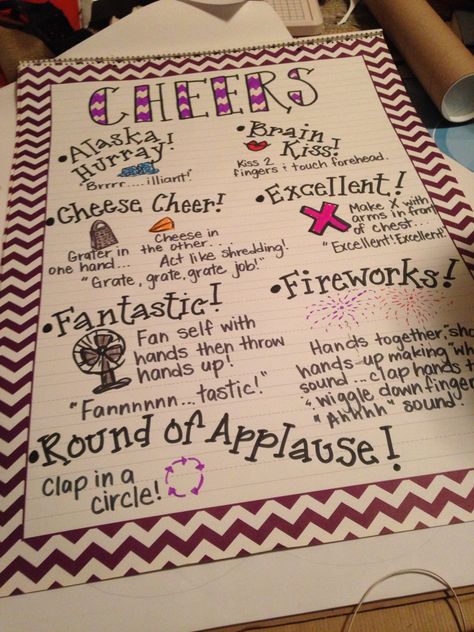 CHEERS
• Alaska
Hurray!
"Brrrr....illiant!"
• Brain
Kiss!
Kiss 2
fingers & touch forehead.
• Cheese Cheer!
Grater in
one hand...
Cheese in
the other...
Act like shredding!
"Grate, grate, grate job!"
• Excellent!
Make X with
arms in front
of chest...
"Excellent! Excellent!"
• Fantastic!
Fan self with
hands then throw
hands up!
"Fannnnnn...tastic!"
• Fireworks!
Hands together, "sh
hands up making "wh
sound...clap hands t
& wiggle down finger
"Ahhhh" sound!
• Round of Applause!
Clap in a
circle!